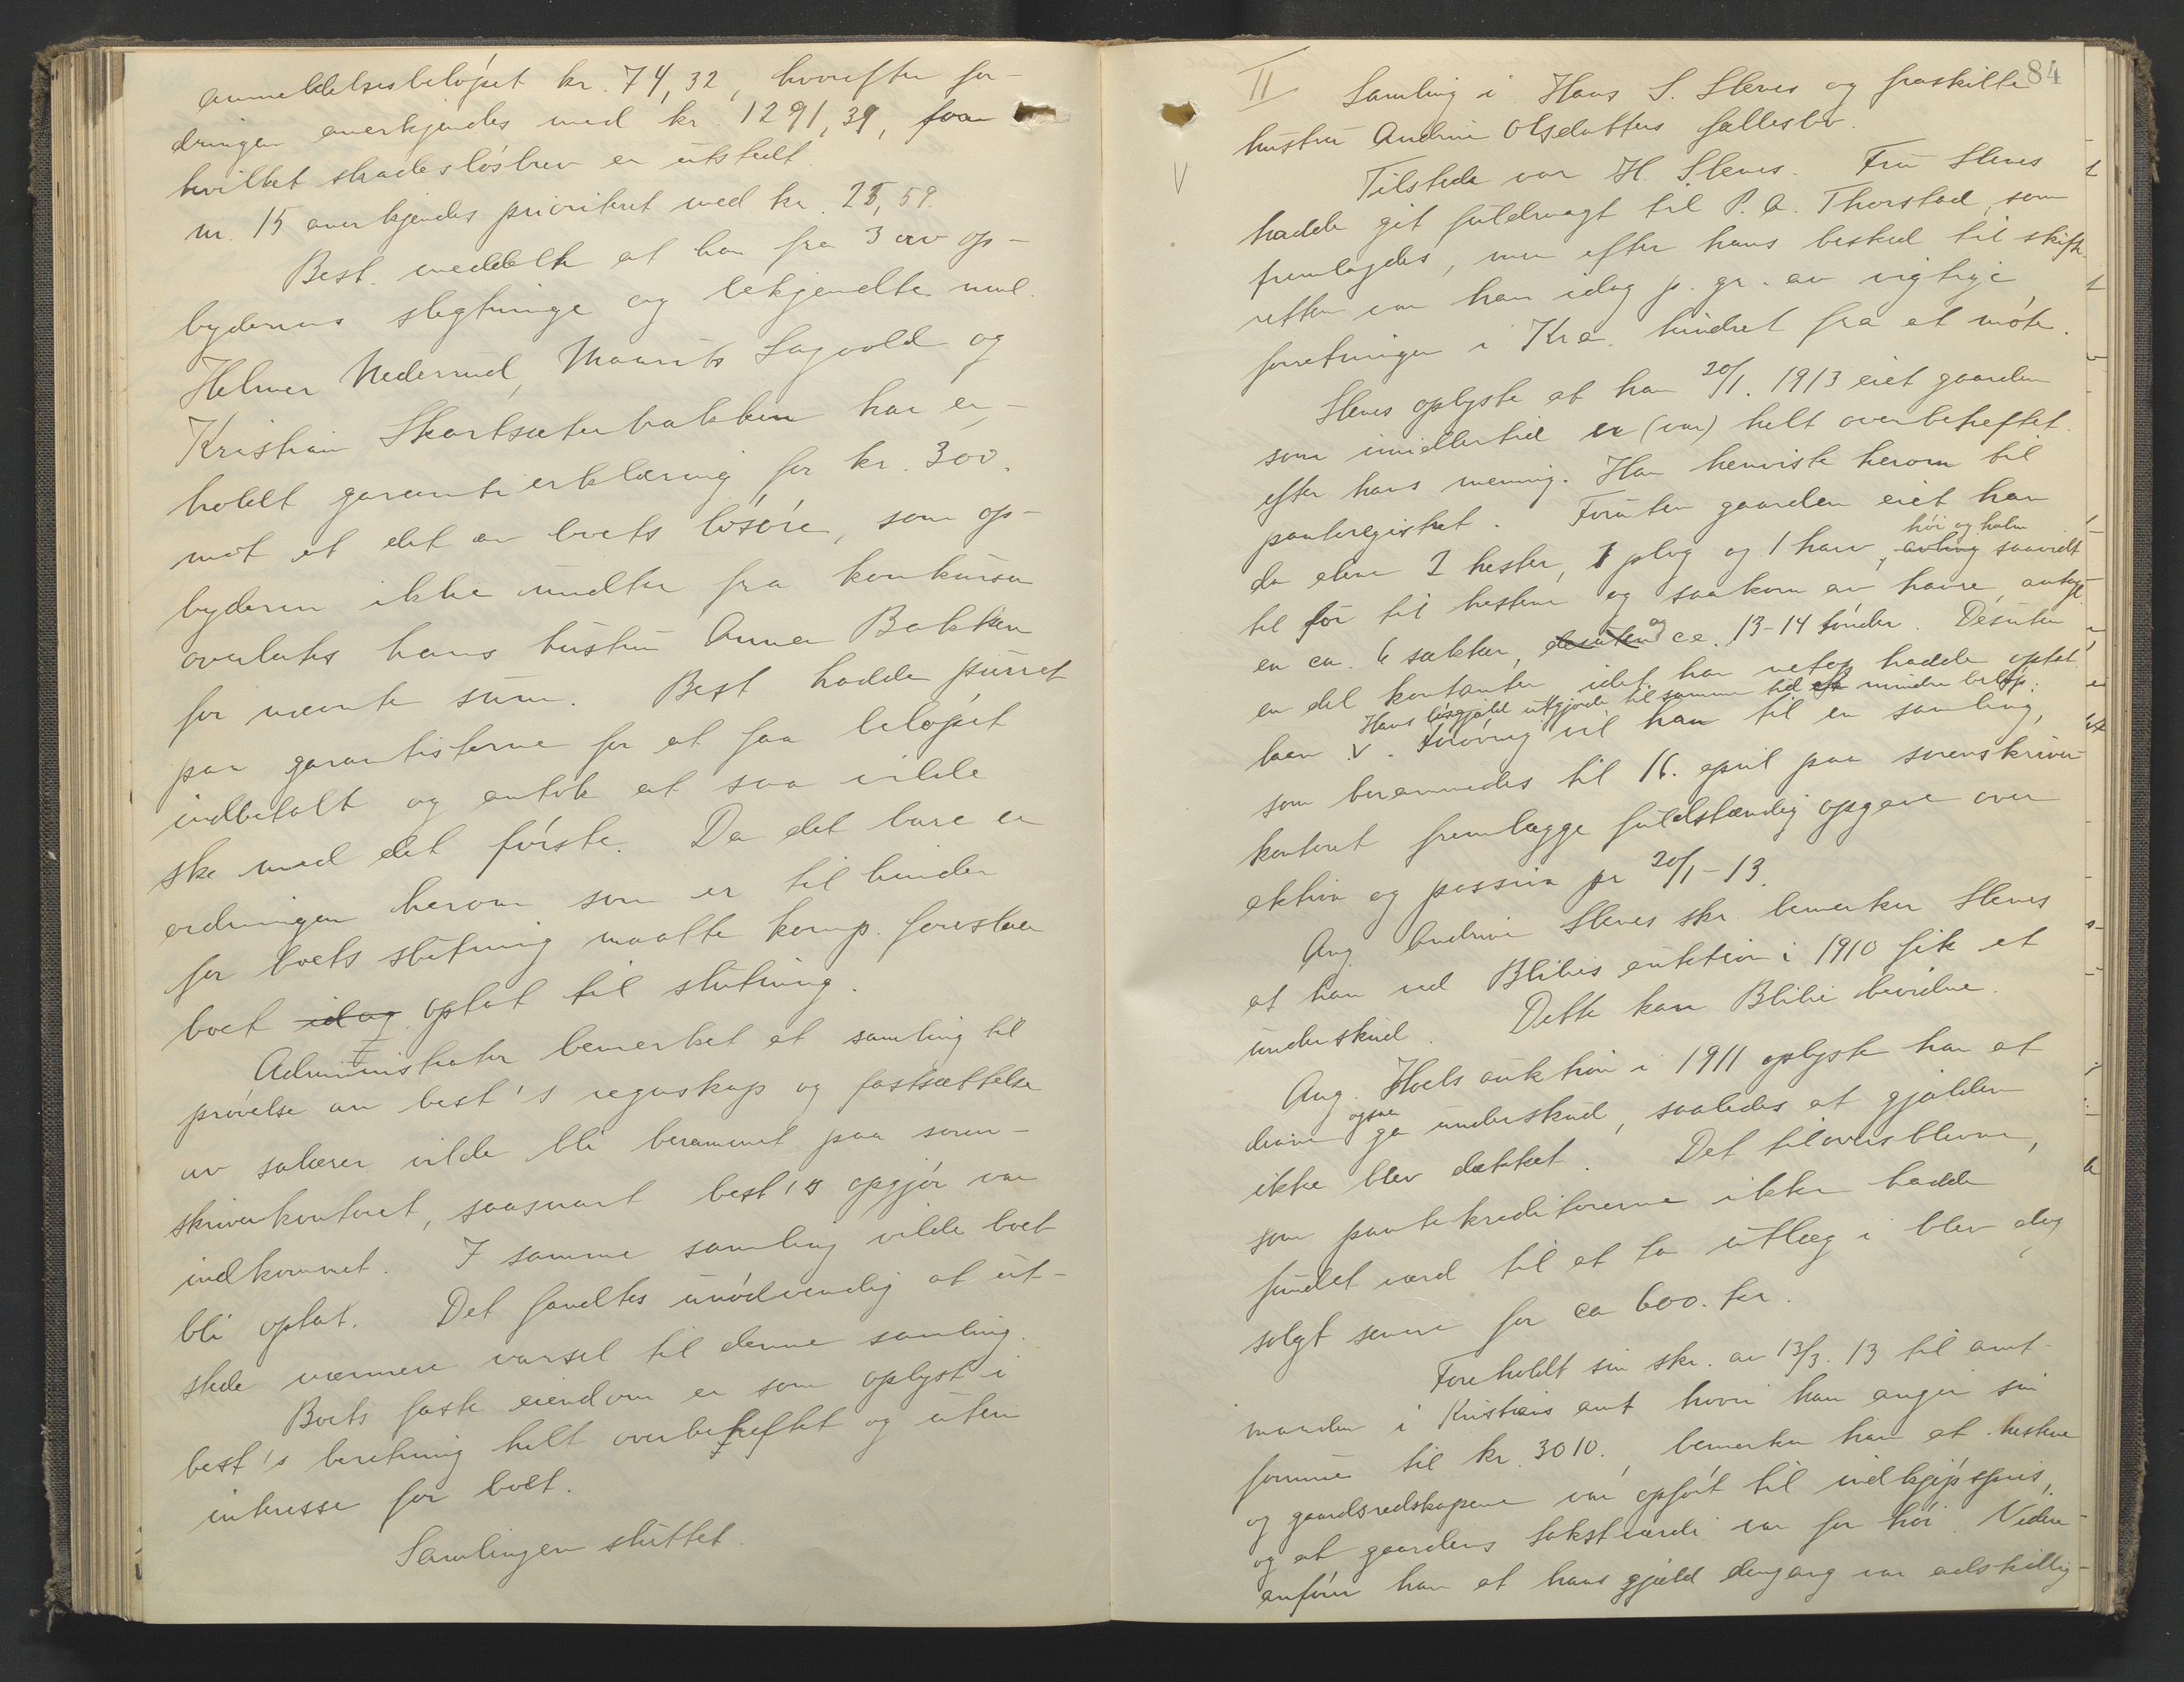 anmeldelsesbeløpet kr. 74,32, hvorefter for-
dringen anerkjendes med kr. 1291,39, for
hvilket skadesløsbrev er utstedt.
nr. 15 anerkjendes prioritert med kr. 25,59.
Best. meddelte at han fra 3 av op-
byderens slegtninge og bekjendte
Helmer Nederud, Maurits Sagvold og
Kristian Skartsæterbakken har er-
holdt garantierklæring for kr. 300.
mot at det av boets løsøre, som op-
byderen ikke undtar fra konkursen
overlates hans hustru Anna Bakken
for nævnte sum. Best. hadde purret
paa garantisterne for at faa beløpet
indbetalt og antok at saa vilde
ske med det første. Da det bare er
ordningen herom som er til hinder
for boets slutning maatte komp. foreslaa
boet idag optat til slutning.
Administrator bemerket at samling til
prøvelse av best's regnskap og fastsættelse
av salærer vilde bli berammet paa soren-
skriverkontoret, saasnart best's opgjør var
indkommet. I samme samling vilde boet
bli optat. Det fandtes unødvendig at ut-
stede nærmere varsel til denne samling.
Boets faste eiendom er som oplyst i
best's beretning helt overbeheftet og uten
interesse for boet.
Samlingen sluttet.
84
II Samling i Hans S. Slevs og fraskilte
hustru Andrine Olsdatters fællesbo.
Tilstede var H. Sleves. Fru Sleves
V hadde git fuldmagt til P. A. Thorstad, som
fremlagdes, men efter hans besked til skifte
retten var han idag p. gr. av vigtige
forretninger i Kra. hindret fra at møte.
Sleves oplyste at han 20/1. 1913 eiet gaarden
som imidlertid er (var) helt overbeheftet
efter hans mening. Han henviste herom til
panteregistret. Foruten gaarden eiet han
høi og halm
da alene 2 hester, 1 plog og 1 harv, avling saavidt
til for til hestene og saakorn av havre, antagl.
en ca. 6 sækker, desuten og ca. 13-14 tønder. Desuten
en del kontanter idet han netop hadde optat
Hans løsgjæld utgjorde til samme tid et mindre beløp.
laan V. Forøvrig vil han til en samling,
som berammedes til 16. april paa sorenskriver
kontoret fremlægge fuldstændig opgave over
aktiva og passiva pr 20/1-13.
Ang. Andrine Sleves skr. bemerker Sleves
at han ved Blilies auktion i 1910 fik et
underskud. Dette kan Blilie bevidne.
Ang. Hoels auktion i 1911 oplyste han at
ogsaa
denne ga underskud, saaledes at gjælden
ikke blev dækket. Det tiloversblevne,
som pantekreditorerne ikke hadde
fundet værd til at ta utlæg i blev dog
solgt senere for ca 600. kr.
Foreholdt sin skr. av 13/3. 13 til amt-
manden i Kristians amt hvori han angir sin
formue til kr. 3010., bemerker han at hestene
og gaardsredskapene var opført til indkjøpspris,
og at gaardens takstværdi var for høi. Videre
anfører han at hans gjæld dengang var adskillig-